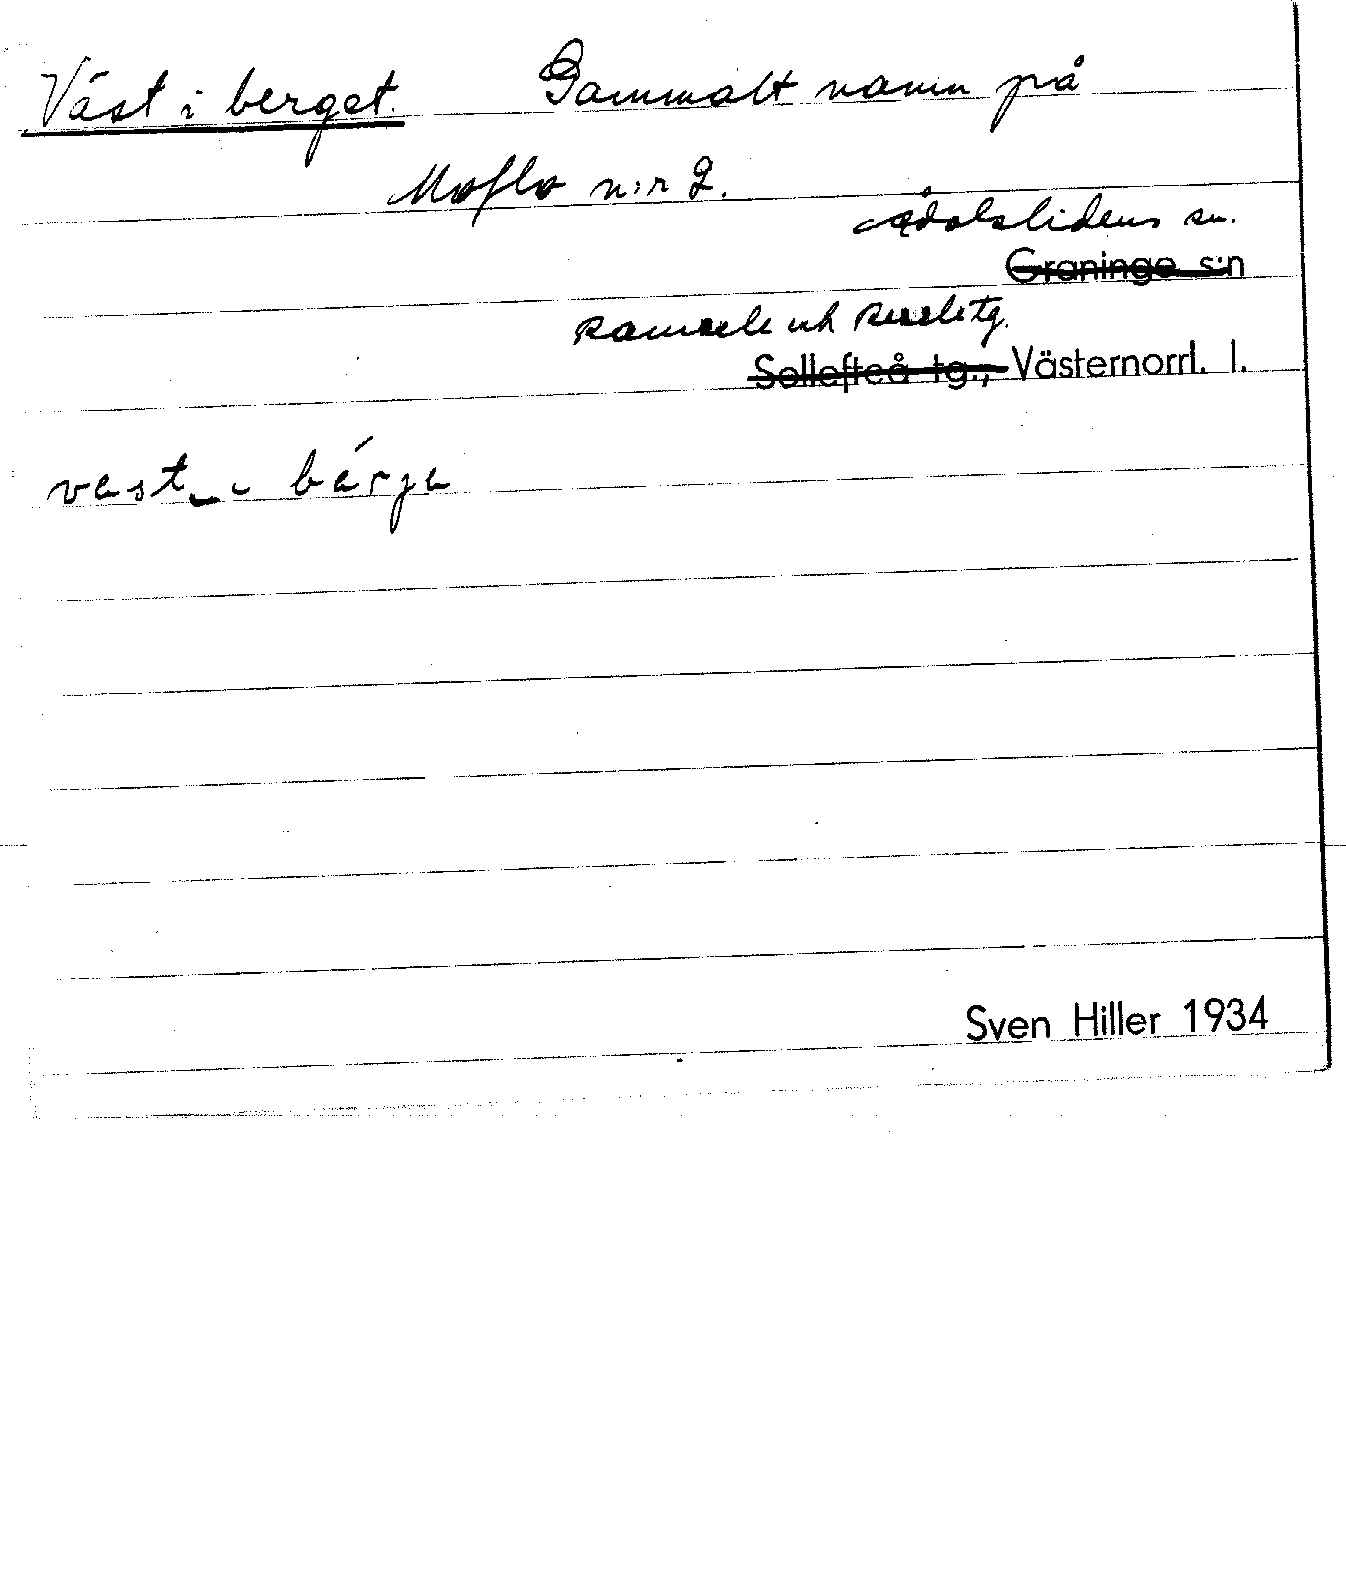 Väst i berget. Gammalt namn på
Moflo n:r 2.
Ådalslidens sn.
Graninge s:n
Ramsele och Resele tg.
Sollefteå tg., Västernorrl. l.
vest i bérje
Sven Hiller 1934